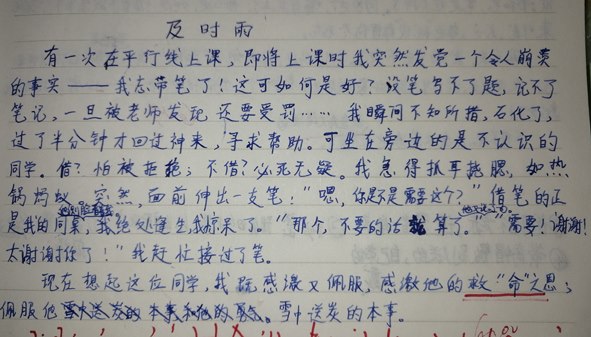 及时雨
有一次在平行线上课，即将上课时我突然发觉一个令人崩溃
的事实——我忘带笔了！这可如何是好？没笔写不了题，记不了
笔记，一旦被老师发现还要受罚……我瞬间不知所措，石化了，
过了半分钟才回过神来，寻求帮助。可坐在旁边的是不认识的
同学。借？怕被拒绝；不借？必死无疑。我急得抓耳挠腮，如热
锅蚂蚁，突然，面前伸出一支笔！“嗯，你是不是需要这个？”借笔的正
是我的同桌，我绝处逢生，我惊呆了。“那个，不要的话就算了。”“需要！谢谢！
太谢谢你了！”我赶忙接过了笔。
现在想起这位同学，我既感激又佩服，感激他的救“命”之恩；
佩服他雪中送炭的本事。